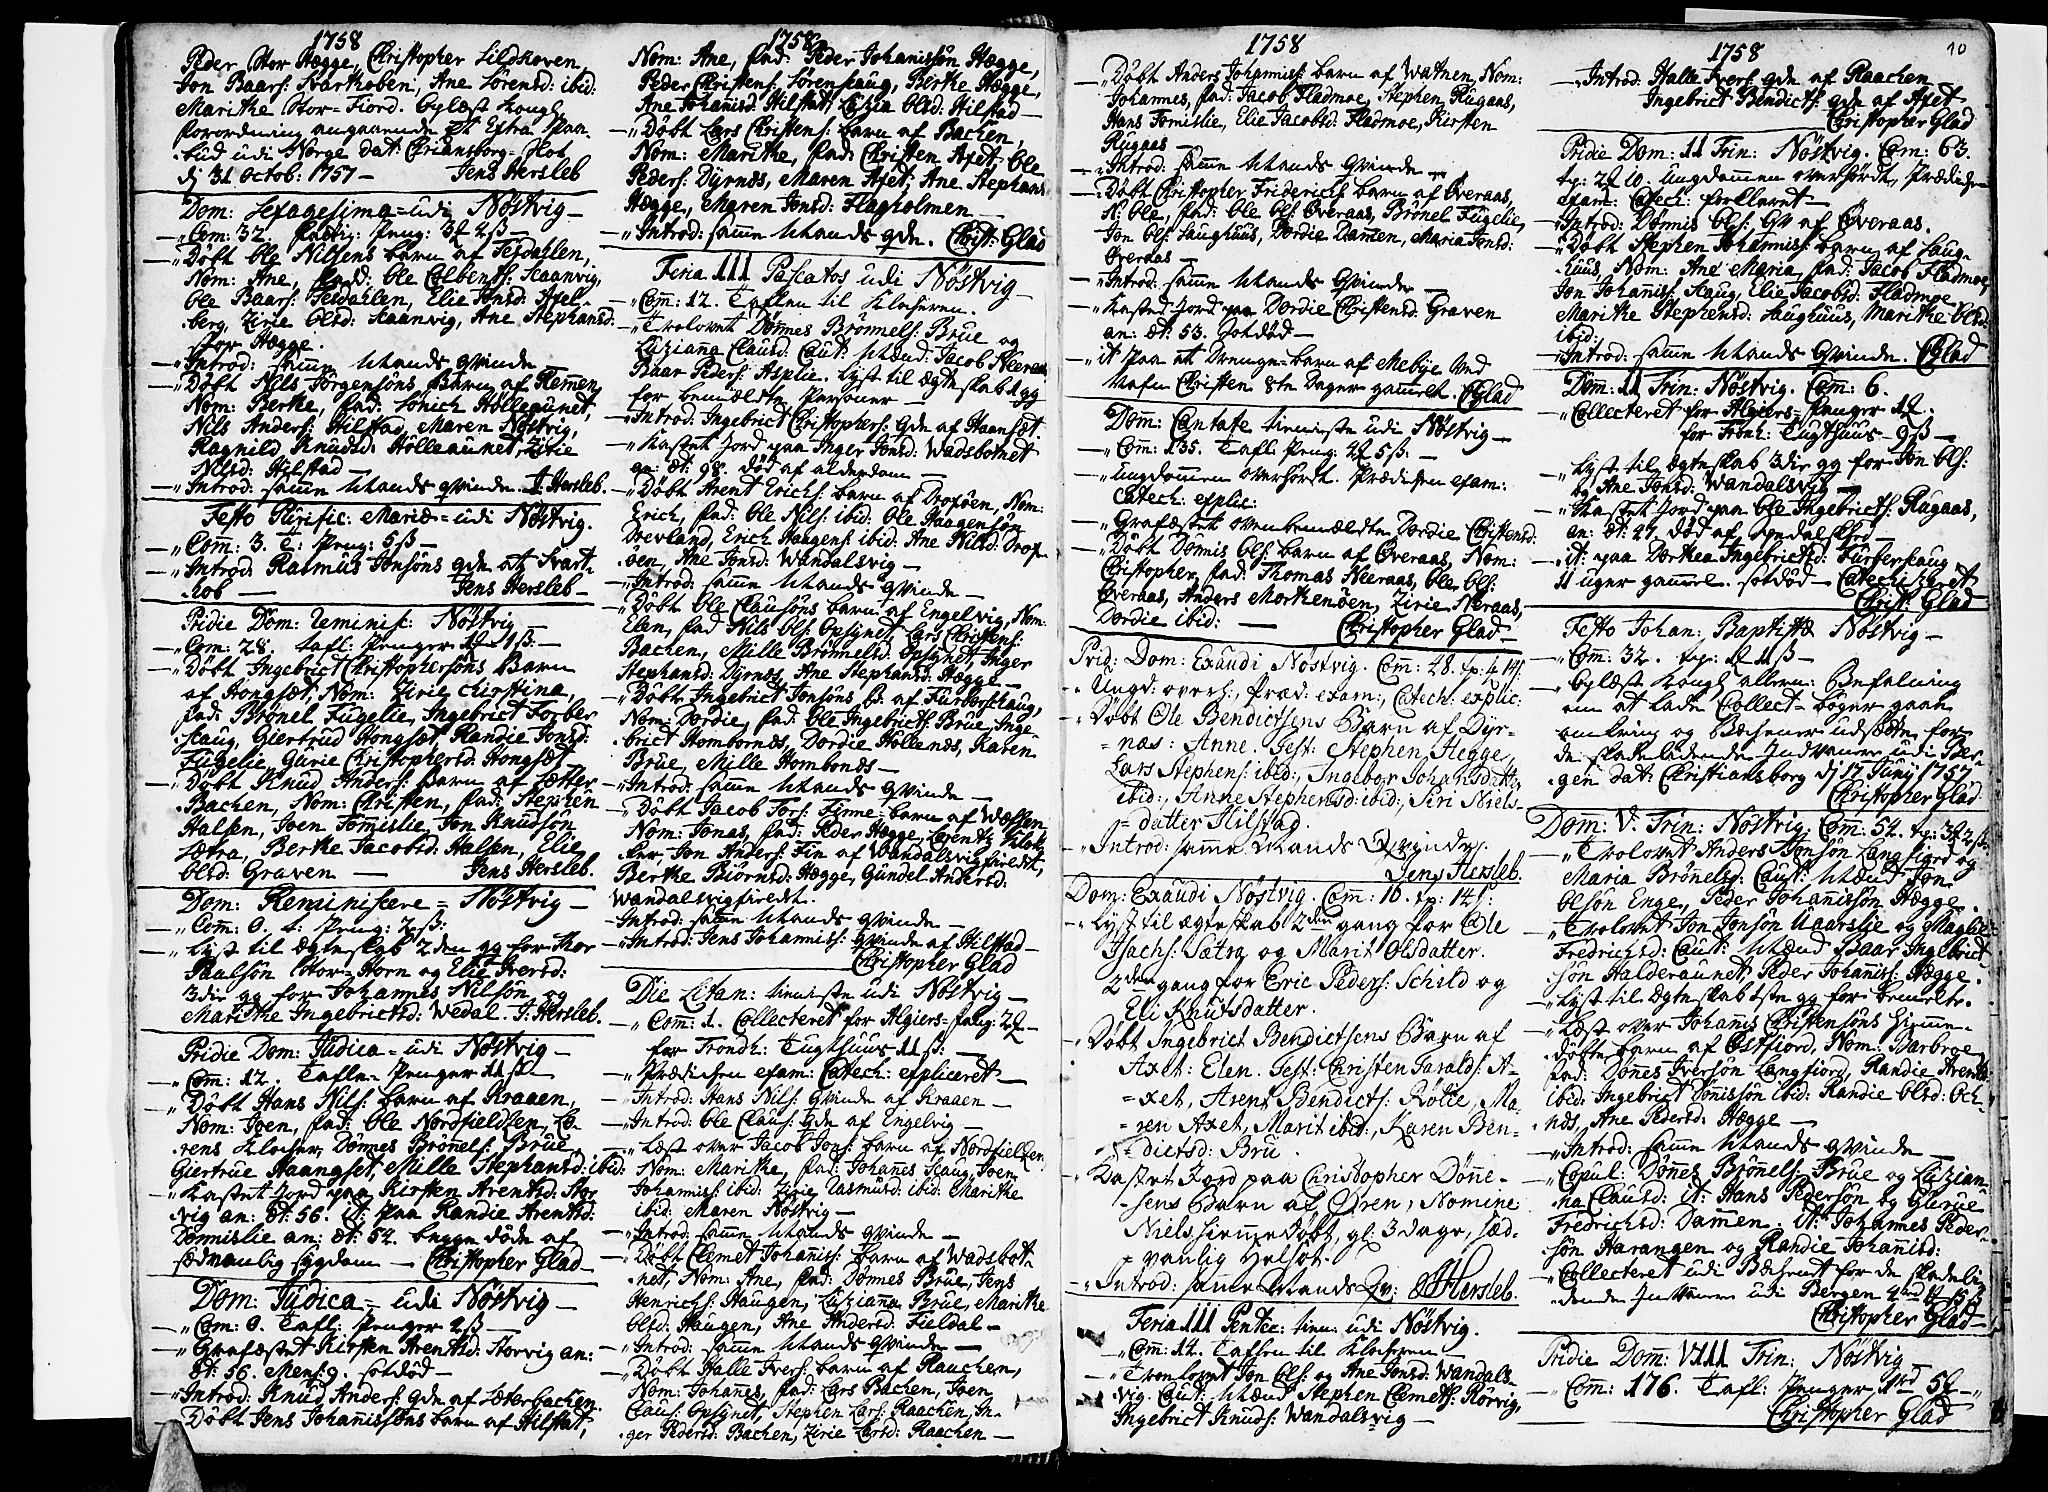 1758
Peder Stor Hægge, Christopher Sildhoven,
Jon Baars: Svartkoben, Ane Sörensd: ibid:
Maritke Stor-Fiord. Oplæst Kongl
forordning angaaende et Extra Paa-
bud udi Norge dat: Chriansborg-Slot
dj 31 Octob: 1757 - Jens Hersleb
Dom: Sexagesima = udi Nöstvig -
Com: 32. fadig: Peng: 3
Döbt Ole Nilsens barn af Teisdahlen,
Nom: Ane, fad: Ole Colbents: Skaanvig,
Ole Baars: Teisdahlen, Elie Jonsd: Axel-
berg, Zirie Olsd: Skaanvig, Ane Stephansd:
Stor Hægge.
Introd: samme Mands Qvinde
Döbt Nils Jörgensöns Barn af Remmen,
Nom: Berke, fad: Hölleaunet,
Nils Anders: Hilstad, Maren Nöstvig,
Ragnild Knudsd: Hölleaunet, Zirie
Nilsd: Hilstad
Introd: samme Mands Qvinde. J. Hersleb.
Festo Purific: Mariæ = udi Nöstvig.
Com: 3. T: Peng: 5 ß -
Introd: Rasmus Jonsöns qde at Svart-
kob - Jens Hersleb -
Pridie Dom: Reminisc: Nöstvig -
Com: 28. tafl: Penger
Döbt Ingebrict Christophersöns Barn
af Hongset, Nom: Zirie Christina,
fad: Brönel Fugelie, Ingebrict Forber
skaug, Giertrud Hongset, Randie Jonsd:
Fugelie, Gurie Christophersd: Hongset -
Döbt Knud Anders: Barn af Sætter
Bachen, Nom: Christen, fad: Stephen
Halsen, Joen Tommislie, Jon Knudsön
Sætra, Berke Jacobsd: Halsen, Elie
Olsd: Graven - Jens Hersleb.
Dom: Reminiscere = Nöstvig -
Com: 0. t: Peng: 2 ß:
Lyst til ægteskab 2den gg for Thor
Paulsön Stor-Horn og Elie Iversd:
3die gg for Johannes Nilsön og
Maritke Ingebrictsd: Wedal. J: Hersleb.
Pridie Dom: Judica = udi Nöstvig -
Com: 12. Tafle Penger 11 ß
Döbt Hans Nils: barn af Kraaen,
Nom: Joen, fad: Ole Nordfieldsen, Lo-
rens Klocker, Dönnes Brönnels: Brue,
Giertrue Haangset, Mille Stephansd: ibid:
Kastet Jord paa Kirsten Arentsd: Stor
vig an: æt: 56. it: paa Randie Arentsd:
Dömmislie an: æt: 52. begge döde af
sædvanlig sygdom - Christopher Glad -
Dom: Judica = udi Nöstvig -
Com: 0. Tafl: Penger 2 ß -
Grafæstet Kirsten Arentsd: Storvig an:
æt: 56. Mens: 9. sotdöd -
Introd: Knud Anders: qde af Sæterbachen.
Döbt Jens Johannissöns barn af Hilstat,
1758
Nom: Ane, fad: Peder Johanissön Hægge,
Peder Christens: Sörenskaug, Berke Hægge,
Ane Johanisd: Hilstat, Olsd: Hilstad -
Döbt Lars Christens: barn af Bachen,
Nom: Maritke, fad: Christen Axet, Ole
Peders: Dyrnæs, Maren Axet, Ane Stephans
Hægge, Maren Jonsd: Flagholmen -
Introd: samme Mands qde. Christ: Glad
Feria III Pascatos udi Nöstvig -
Com: 12. Taflen til Klockeren.
Trolovet Dönnes Brönnels: Brue og
Luzianna Clausd: Caut: Mænd: Jacob Neeraas
Baar Peders: Asplie. Lyst til ægteskab 1 gg
for bemældte Personer -
Introd: Ingebrict Christophers: Qde af Haanset.
Kastet Jord paa Inger Jonsd: Wadsbotnet
an: æt: 98. död af alderdom -
Döbt Arent Erichs: barn af Dropöen, Nom:
Erich, fad: Ole Nils: ibid: Ole Haagensön
Drevland, Erich Haagens: ibid: Ane Nilsd: Drop-
öen, Ane Jonsd: Wandalsvig -
Introd: samme Mands Qvinde -
Döbt Ole Clausöns barn af Engelvig, Nom:
Elen, fad Nils Ols: Opsynet, Lars Christens:
Bachen, Mille Brönnelsd: Opsynet, Inger
Stephansd: Dyrnæs, Ane Stephansd: Hægge -
Döbt Ingebrict Jonsöns B. af Furberskaug,
Nom: Dordie, fad: Ole Ingebricts: Brue, Inge-
brict Hombornæs, Dordie Hollenæs, Karen
Brue, Mille Hombonæs -
Introd: samme Mands Qvinde -
Döbt Jacob Tors: Finne: barn af
Nom: Jonas, fad: Peder Hægge, Lorentz Kloc-
ker, Jon Anders: Fin af Wandalsvigfiredt,
Berke Biörnsd: Hægge, Gundel Andersd:
Wandalsvigfiredt.
Introd: samme Mands Qvinde -
Introd: Jens Johannis: Qvinde af Hilstad -
Christopher Glad
Die Litan: tieniste udi Nöstvig -
Com: 1. Collecteret for Algiers-fang:
for Trondh: Tugthuus 11 ß: -
Prædichen exam: Catech: expliceret -
Introd: Hans Nils: Qvinde af Kraaen -
Introd: Ole Claus: Qde af Engelvig -
Læst over Jacob Jons: barn af Nordfielsen,
Nom: Maritke, fad: Johanes Skaug, Joen
Johannis: ibid: Zirie Rasmusd: ibid: Maritke
ibid: Maren Nöstvig -
Introd: samme Mands Qvinde -
Döbt Clemet Johannis: barn af Wadsbot-
net, Nom: Ane, fad: Dönnes Brue, Jens
Henrichs: Haugen, Luzianna Brue, Maritke
Olsd: Haugen, Ane Andersd: Fieldal -
Introd: samme Mands Qvinde -
Döbt Halle Ivers: barn af Raachen,
Nom: Johanes, fad: Lars Bachen, Joen
Claus: Opsynet, Stephen Lars: Raachen, In-
ger Pedersd: Bachen, Zirie Larsd: Raachen -
1758
Döbt Anders Johannis: barn af Watnen, Nom:
Johannes, fad: Jacob Fladmoe, Stephen Rugaas,
Hans Tomislie, Elie Jacobsd: Fladmoe, Kirsten
Rugaas -
Introd: samme Mands Qvinde -
Döbt Christopher Friderichs barn af Överaas,
N: Ole, fad: Ole Ols: Överaas, Brönel Fugelie,
Jon Ols: Saughuus, Dordie Damen, Maria Jonsd:
Överaas -
Introd: samme Mands Qvinde -
Kasted Jord paa Dordie Christensd: Graven
an: æt: 53. sotdöd -
it paa et Drenge-barn af Mebye ved
Nafn Christen 8te Dager gammel. CGlad
Dom: Cantate tieniste udi Nöstvig -
Com: 135. Tafl: Peng:
Ungdommen overhördt. Prædichen exam:
Catech: explic:
Grafæstet ovenbemældte Dordie Christensd:
Döbt Dönnis Ols: barn af Överaas, Nom:
Christopher, fad: Thomas Neeraas, Ole Ols:
Överaas, Anders Morkenöen, Zirie Neraas,
Dordie ibid: - Christopher Glad -
Prid: Dom: Exaudi Nöstvig. Com: 48.
Ungd: overh:, Præd: exam:, Catech: explic:
Döbt Ole Bendictsens Barn af Dyr-
næs: Anne. Test: Stephen Hegge,
Lars Stephens: ibid:, Ingebor Johansdatter
ibid:, Anne Stephensd: ibid:, Siri Niels-
datter Hilstad.
Introd: samme Mands Qvinde.
Jens Hersleb.
Dom: Exaudi Nöstvig. Com: 16.
Lyst til ægteskab 2den gang for Ole
Isachs: Sætra og Marit Olsdatter.
2den gang for Eric Peders: Schild og
Eli Knudsdatter.
Döbt Ingebrict Bendictsens Barn af
Axet: Elen. Test: Christen Taralds: A-
xet, Arent Bendicts: Rölie, Ma-
ren Axet, Marit ibid:, Karen Ben-
dictsd: Bru.
Kastet Jord paa Christopher Dönne-
sens Barn af Ören, Nomine
Niels, hiemmedöbt, gl: 3 Dage, sæd-
vanlig Helsot.
Introd: samme Mands Qv: JHersleb.
Feria III Pentec: tien: udi Nöstvig.
Com: 12. Taflen til Klockeren -
Troelovet Jon Ols: og Ane Jonsd: Wandals-
vig. Caut: Mænd Stephen Clemets: Rörvig,
Ingebrict Knuds: Wandalsvig -
1758
10
Introd: Halle Ivers: qde af Raachen -
Ingebrict Bendicts: qde af Axet -
Christopher Glad
Pridie Dom: II Trin: Nöstvig. Com: 63.
Ungdommen overhördt, Prædichen
exam: Catech: forklaret -
Introd: Dönnis Ols: Qv af Överaas.
Döbt Stephen Johannis: barn af Saug-
huus, Nom: Ane Maria, fad: Jacob Fladmoe,
Jon Johannis: Skaug, Elie Jacobsd: Fladmoe
Maritke Stephensd: Saughuus, Maritke Olsd:
ibid:
Introd: samme Mands Qvinde. CGlad
Dom: II Trin: Nöstvig. Com: 6.
Collecteret for Algiers-fanger
for Tronh: Tugthuus - 9 ß -
Lyst til ægteskab 3die gg for Jon Ols:
og Ane Jonsd: Wandalsvig -
Kastet Jord paa Ole Ingebricts: Rugaas,
an: æt: 27. död af
it: paa Dorthea Ingebrictsd: Furberskaug
11 uger gammel. sotdöd - Catechizeret
Christ: Glad
Festo Johan: Baptistæ Nöstvig -
Com: 32.
Oplæst Kongl allern: Befalning
om at lade Collect-böger gaae
omkring og Bechener udsættes for
de skadelidende Indvaanere udi Ber-
gen dat: Christiansborg dj 17 Juny 1757
Christopher Glad
Dom: V. Trin: Nöstvig. Com: 52.
Trolovet Anders Jonsön Langfiord og
Maria Brönelsd: Caut: Mænd Jon
Olsön Enge, Peder Johanissön Hægge.
Trolovet Jon Jonsön Aaarslie og Magle
Fredrichsd: Caut: Mænd Baar Ingebrict-
sön Halderaunet, Peder Johanis: Hægge.
Lyst til ægteskab 1ste gg for bemelte.
Læst over Johanis Christensöns hieme-
döbte barn af Ostfiord, Nom: Barbroe,
fad: Dönes Iversön Langfiord, Randie Arentsd:
ibid, Ingebrict Dönissön ibid: Randie Olsd: Och-
næs, Ane Pedersd: Hægge -
Introd: samme Mands Qvinde -
Copul: Dönes Brönels: Brue og Luzian-
na Clausd: it: Hans Pedersön og Gurue
Fredrichsd: Dammen. it: Johannes Peder-
sön Harangen og Randie Johanisd:
Collecteret udi Bechenet for de skadeli
dende Indvaanere udi Bergen
Christopher Glad -
Pridie Dom: VIII Trin: Nöstvig
Com: 176. Tafl: Penger
Christopher Glad